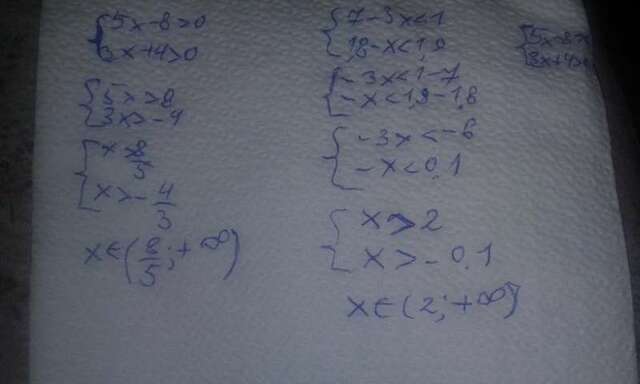 5x-8>0
3x+4>0
5x>8
3x>-4
x>8/5
x>-4/3
x∈(8/5;+∞)
7-3x<1
1,8-x<1,9
-3x<1-7
-x<1,9-1,8
-3x<-6
-x<0,1
x>2
x>-0,1
x∈(2;+∞)
5x-8>
3x+4>